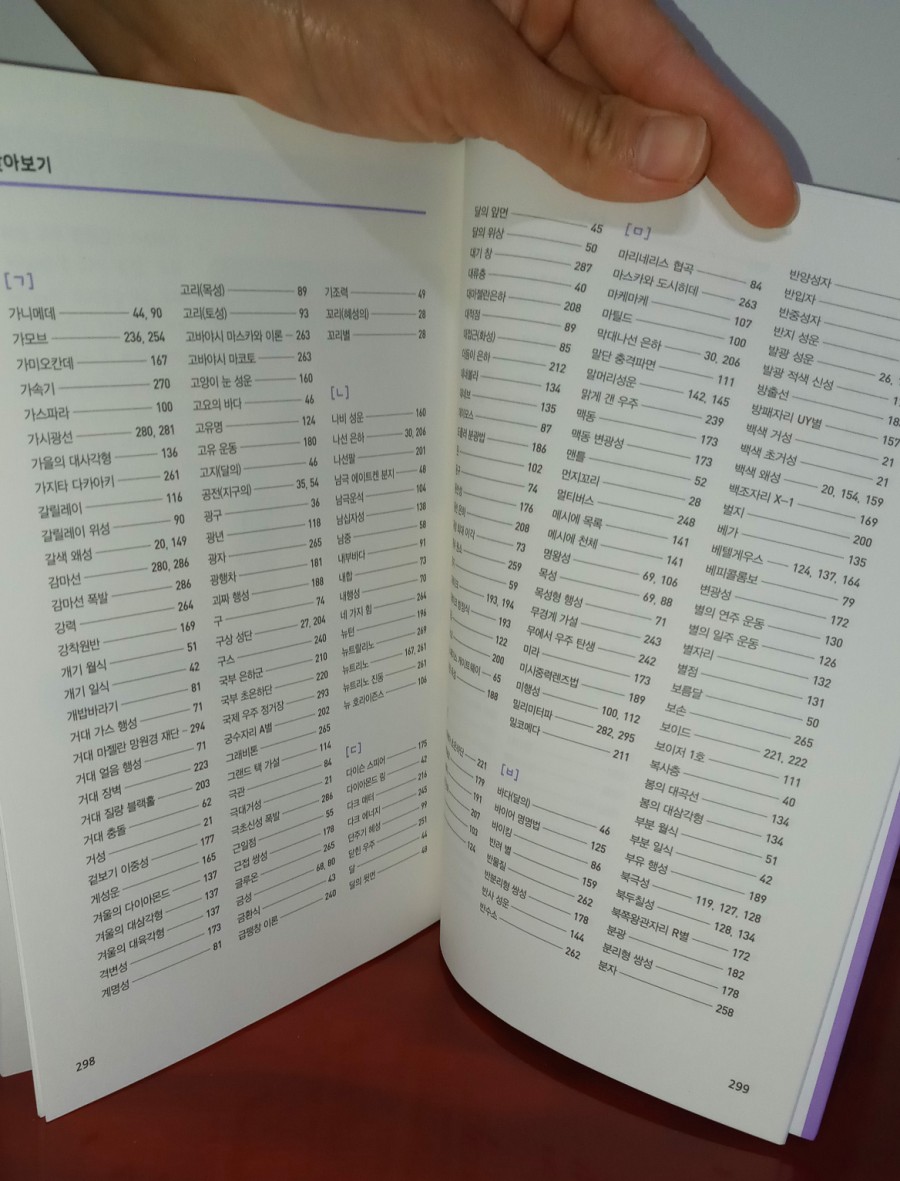 아보기
[ㄱ]
가니메데 44, 90
가모브 236, 254
가미오칸데 167
가속기 270
가스파라 100
가시광선 280, 281
가을의 대사각형 136
가지타 다카아키 261
갈릴레이 116
갈릴레이 위성 90
갈색 왜성 20, 149
감마선 280, 286
감마선 폭발 286
강력 264
강착원반 169
개기 월식 51
개기 일식 42
개밥바라기 81
거대 가스 행성 71
거대 마젤란 망원경 재단 294
거대 얼음 행성 71
거대 장벽 223
거대 질량 블랙홀 203
거대 충돌 62
거성 21
겉보기 이중성 177
게성운 165
겨울의 다이아몬드 137
겨울의 대삼각형 137
겨울의 대육각형 137
격변성 173
계명성 81
고리(목성) 89
고리(토성) 93
고바야시 마스카와 이론 263
고바야시 마코토 263
고양이 눈 성운 160
고요의 바다 46
고유명 124
고유 운동 180
고지(달의) 46
공전(지구의) 35, 54
광구 36
광년 118
광자 265
광행차 181
괴짜 행성 188
구 74
구상 성단 27, 204
구스 240
국부 은하군 210
국부 초은하단 220
국제 우주 정거장 293
궁수자리 A별 202
그래비톤 265
그랜드 택 가설 114
극관 84
극대거성 21
극초신성 폭발 286
근일점 55
근접 쌍성 178
글루온 265
금성 68, 80
금환식 43
급팽창 이론 240
기조력 49
꼬리(혜성의) 28
꼬리별 28
[ㄴ]
나비 성운 160
나선 은하 30, 206
나선팔 201
남극 에이트켄 분지 48
남극운석 104
남십자성 138
남중 58
내부바다 91
내합 73
내행성 70
네 가지 힘 264
뉴턴 196
뉴트랄리노 269
뉴트리노 167, 261
뉴트리노 진동 261
뉴 호라이즌스 106
[ㄷ]
다이슨 스피어 175
다이아몬드 링 42
다크 매터 216
다크 에너지 245
단주기 혜성 99
닫힌 우주 251
달 44
달의 뒷면 48
298
달의 앞면 45
달의 위상 50
대기 창 287
대류층 40
대마젤란은하 208
대적점 89
대접근(화성) 85
더듬이 은하 212
134
135
87
186
102
74
176
208
73
259
59
193, 194
193
122
200
65
188
221
179
191
207
103
124
[ㅁ]
마리네리스 협곡 84
마스카와 도시히데 263
마케마케 107
마틸드 100
막대나선 은하 30, 206
말단 충격파면 111
말머리성운 142, 145
맑게 갠 우주 239
맥동 173
맥동 변광성 173
맨틀 52
먼지꼬리 28
멀티버스 248
메시에 목록 141
메시에 천체 141
명왕성 69, 106
목성 69, 88
목성형 행성 71
무경계 가설 243
무에서 우주 탄생 242
미라 173
미시중력렌즈법 189
미행성 100, 112
밀리미터파 282, 295
밀코메다 211
[ㅂ]
바다(달의) 46
바이어 명명법 125
바이킹 86
반려 별 159
반물질 262
반분리형 쌍성 178
반사 성운 144
반수소 262
반양성자
반입자
반중성자
반지 성운
발광 성운 26,
발광 적색 신성
방출선
방패자리 UY별 157
백색 거성 21
백색 초거성 21
백색 왜성 20, 154, 159
백조자리 X-1 169
벌지 200
베가 135
베텔게우스 124, 137, 164
베피콜롬보 79
변광성 172
별의 연주 운동 130
별의 일주 운동 126
별자리 132
별점 131
보름달 50
보손 265
보이드 221, 222
보이저 1호 111
복사층 40
봄의 대곡선 134
봄의 대삼각형 134
부분 월식 51
부분 일식 42
부유 행성 189
북극성 119, 127, 128
북두칠성 128, 134
북쪽왕관자리 R별 172
분광 182
분리형 쌍성 178
분자 258
299